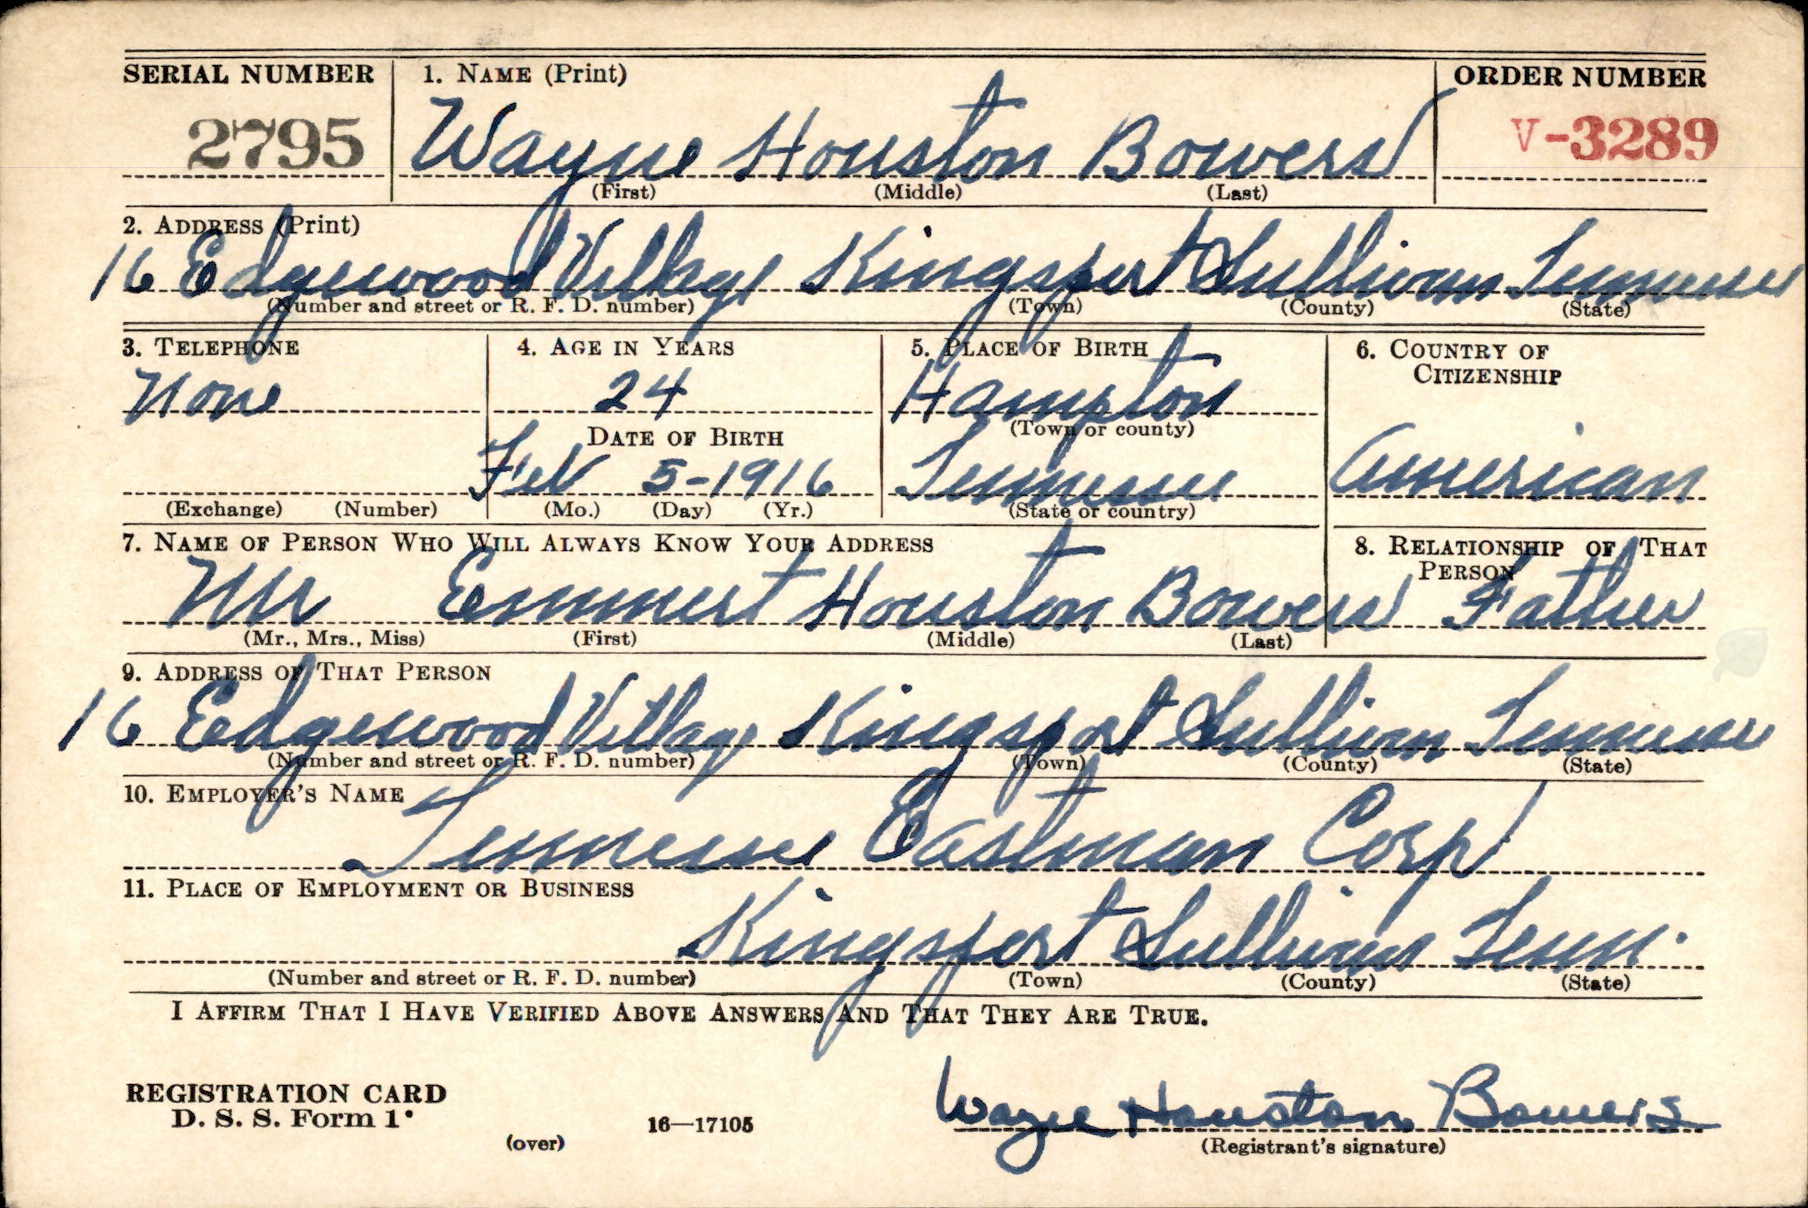 SERIAL NUMBER 1. NAME (Print) ORDER NUMBER
2795 Wayne Houston Bowers V-3289
(First) (Middle) (Last)
2. ADDRESS (Print)
16 Edgewood Village Kingsport Sullivan Tennessee
(Number and street or R. F. D. number) (Town) (County) (State)
3. TELEPHONE 4. AGE IN YEARS 5. PLACE OF BIRTH 6. COUNTRY OF CITIZENSHIP
None 24 Hampton
DATE OF BIRTH (Town or county)
Feb 5-1916 Tennessee American
(Exchange) (Number) (Mo.) (Day) (Yr.) (State or country)
7. NAME OF PERSON WHO WILL ALWAYS KNOW YOUR ADDRESS 8. RELATIONSHIP OF THAT PERSON
Mr Emmert Houston Bowers Father
(Mr., Mrs., Miss) (First) (Middle) (Last)
9. ADDRESS OF THAT PERSON
16 Edgewood Village Kingsport Sullivan Tennessee
(Number and street or R. F. D. number) (Town) (County) (State)
10. EMPLOYER'S NAME
Tennessee Eastman Corp
11. PLACE OF EMPLOYMENT OR BUSINESS
Kingsport Sullivan Tenn.
(Number and street or R. F. D. number) (Town) (County) (State)
I AFFIRM THAT I HAVE VERIFIED ABOVE ANSWERS AND THAT THEY ARE TRUE.
REGISTRATION CARD
D. S. S. Form 1 Wayne Houston Bowers
(over) 16—17105 (Registrant's signature)